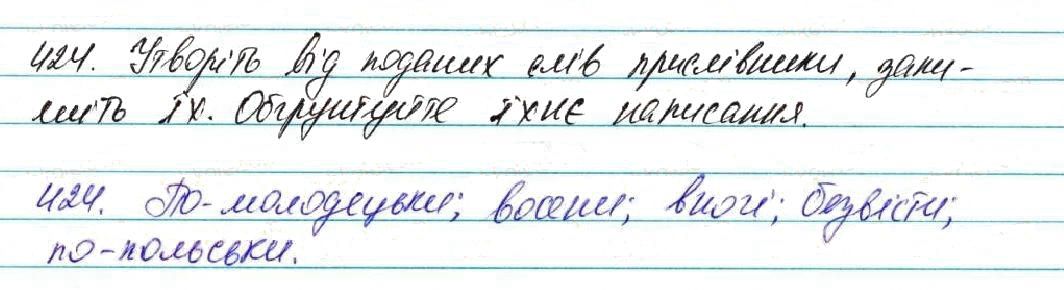 424. Утворіть від поданих слів прислівники, запи-
шіть їх. Обґрунтуйте їхнє написання.
424. По-молодецьки; восени; вночі; безвісти;
по-польськи.